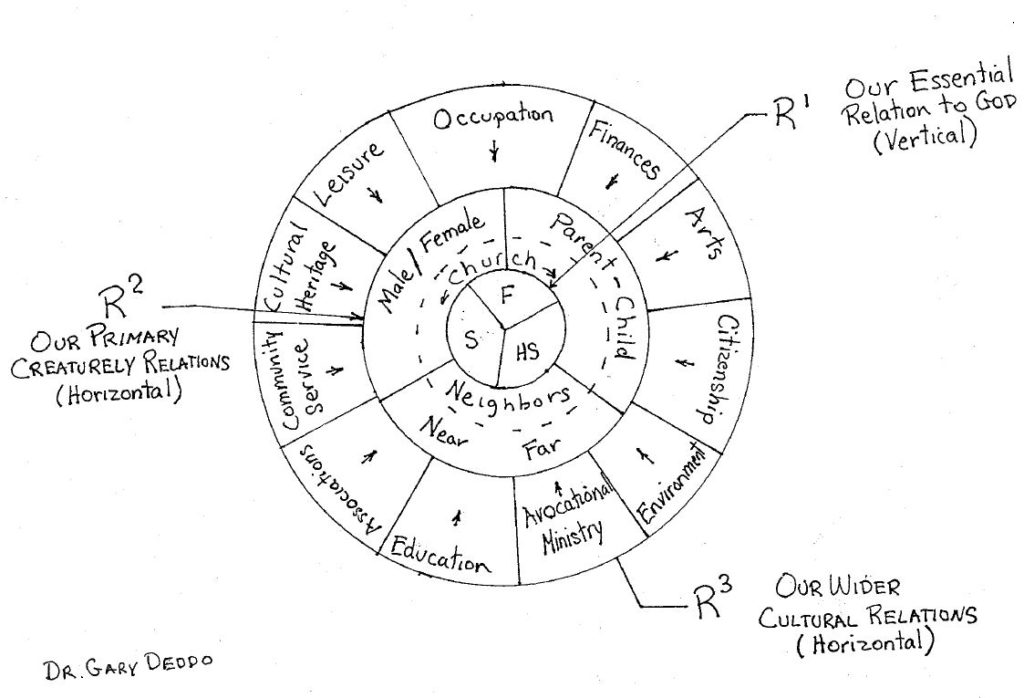 R¹
Our Essential
Relation to God
(Vertical)
Occupation
Finances
Arts
Citizenship
Environment
Avocational
Ministry
Education
Associations
Community
Service
Cultural
Heritage
Leisure
Male/Female
Parent-Child
Church
F
S
HS
Neighbors
Near
Far
R²
Our Primary
Creaturely Relations
(Horizontal)
R³
Our Wider
Cultural Relations
(Horizontal)
Dr. Gary Deddo